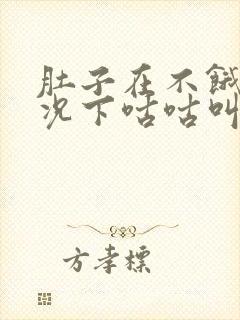 肚子在不饿
况下咕咕叫
方孝标